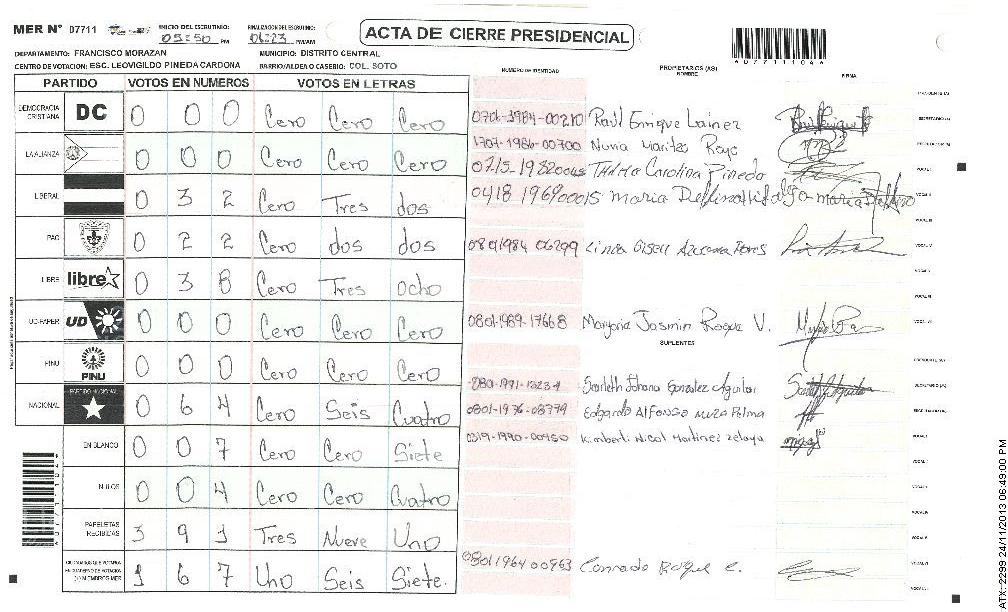 MER N° 07711 INICIO DEL ESCRUTINIO: 05:50 PM FINALIZACION DEL ESCRUTINIO: 06:23 PM/AM ACTA DE CIERRE PRESIDENCIAL
DEPARTAMENTO: FRANCISCO MORAZAN MUNICIPIO: DISTRITO CENTRAL
CENTRO DE VOTACION: ESC. LEOVIGILDO PINEDA CARDONA BARRIO/ALDEA O CASERIO: COL. SOTO
NUMERO DE IDENTIDAD PROPIETARIOS (AS) NOMBRE FIRMA
PARTIDO VOTOS EN NUMEROS VOTOS EN LETRAS
DEMOCRACIA CRISTIANA DC 0 0 0 Cero Cero Cero
0701-1984-00210 Raúl Enrique Lainez
LA ALIANZA 0 0 0 Cero Cero Cero
1707-1986-00700 Nuria Maritza
Carolina Pineda
LIBERAL 0 3 2 Cero Tres dos
0418 1969 00015 Maria
PAC 0 2 2 Cero dos dos
0801 1984 06299
LIBRE libre 0 3 8 Cero Tres ocho
UD-FAPER UD 0 0 0 Cero Cero Cero
0801-1989-17668 Marjorie Jasmin Roque V.
SUPLENTES
PINU PINU 0 0 0 Cero Cero Cero
Gonzalez Aguilar
NACIONAL PARTIDO NACIONAL 0 6 4 Cero Seis Cuatro
0801-1976-08779 Edgardo Alfonso Meza Palma
EN BLANCO 0 0 7 Cero Cero Siete
0319-1990-00450 Kimberli Nicol Martinez Zelaya
NULOS 0 0 4 Cero Cero Cuatro
PAPELETAS RECIBIDAS 3 9 1 Tres Nueve Uno
1 6 7 Uno Seis Siete.
0801 1964 00963 Conrado Roque C.
ATX: 2299 24/11/2013 06:49:00 PM